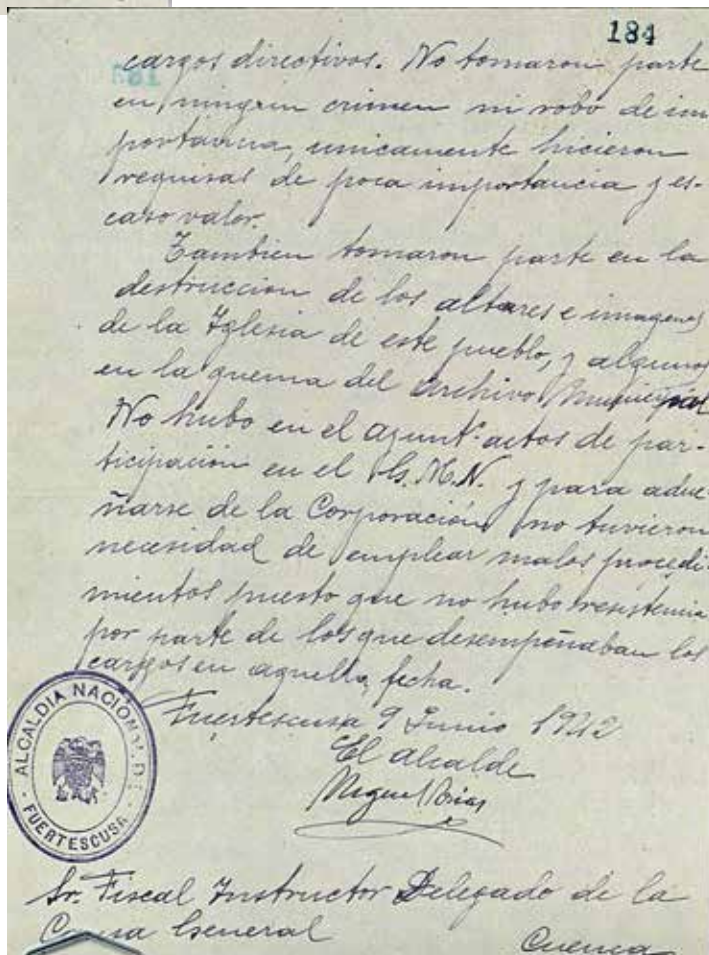 184
cargos directivos. No tomaron parte
en ningun crimen ni robo de im
portancia, unicamente hicieron
requisas de poca importancia y es-
caso valor.
Tambien tomaron parte en la
destruccion de los altares e imagenes
de la Iglesia de este pueblo, y algunos
en la quema del archivo Municipal
No hubo en el ayuntº actos de par-
ticipación en el G.M.N. y para adue
ñarse de la Corporación no tuvieron
necesidad de emplear malos procedi
mientos puesto que no hubo resistencia
por parte de los que desempeñaban los
cargos en aquella fecha.
Fuertescusa 9 Junio 1942
El alcalde
Miguel Arias
ALCALDIA NACIONAL DE
FUERTESCUSA
Sr. Fiscal Instructor Delegado de la
Causa General
Cuenca